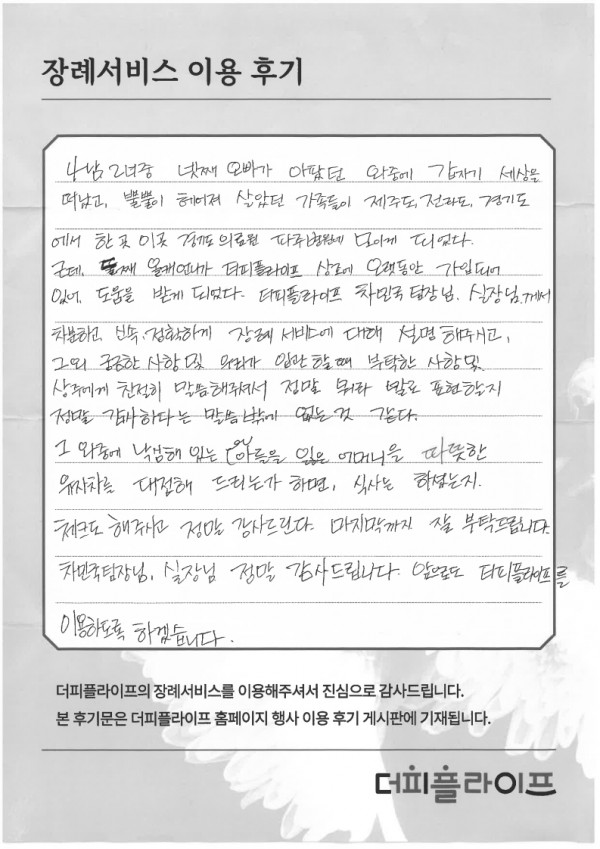 장례서비스 이용 후기
4남 2녀중 넷째 오빠가 아팠던 와중에 갑자기 세상을
떠났고, 뿔뿔이 헤어져 살았던 가족들이 제주도, 전라도, 경기도
에서 한곳 이곳 경기도 의료원 파주병원에 모이게 되었다.
근데, 둘째 올케언니가 더피플라이프 상조에 오랫동안 가입되어
있어, 도움을 받게 되었다. 더피플라이프 차민국 팀장님, 실장님께서
차분하고, 신속, 정확하게 장례 서비스에 대해 설명 해주시고,
그외 궁금한 사항 및 오빠가 입관 할때 부탁한 사항 및
상주에게 친절히 말씀해주셔서 정말 뭐라 말로 표현할지
정말 감사하다는 말씀밖에 없는 것 같다.
그 와중에 낙심해 있는 아들을 잃은 어머니을 따뜻한
유자차를 대접해 드리는가 하면, 식사는 하셨는지.
체크도 해주시고 정말 감사드린다. 마지막까지 잘 부탁드립니다.
차민국팀장님, 실장님 정말 감사드립니다. 앞으로도 더피플라이프를
이용하도록 하겠습니다.
더피플라이프의 장례서비스를 이용해주셔서 진심으로 감사드립니다.
본 후기문은 더피플라이프 홈페이지 행사 이용 후기 게시판에 기재됩니다.
더피플라이프